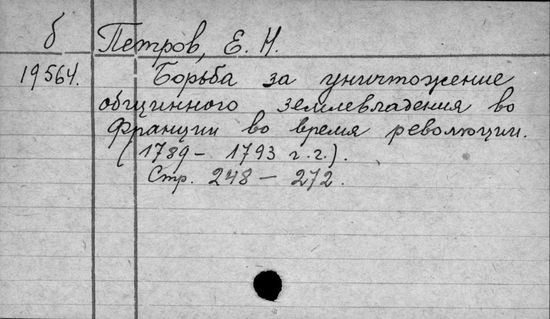 б Петров, Е. Н.
19564. Борьба за уничтожение
общинного землевладения во
Франции во время революции.
(1789 – 1793 г.г.).
Стр. 248 – 272.